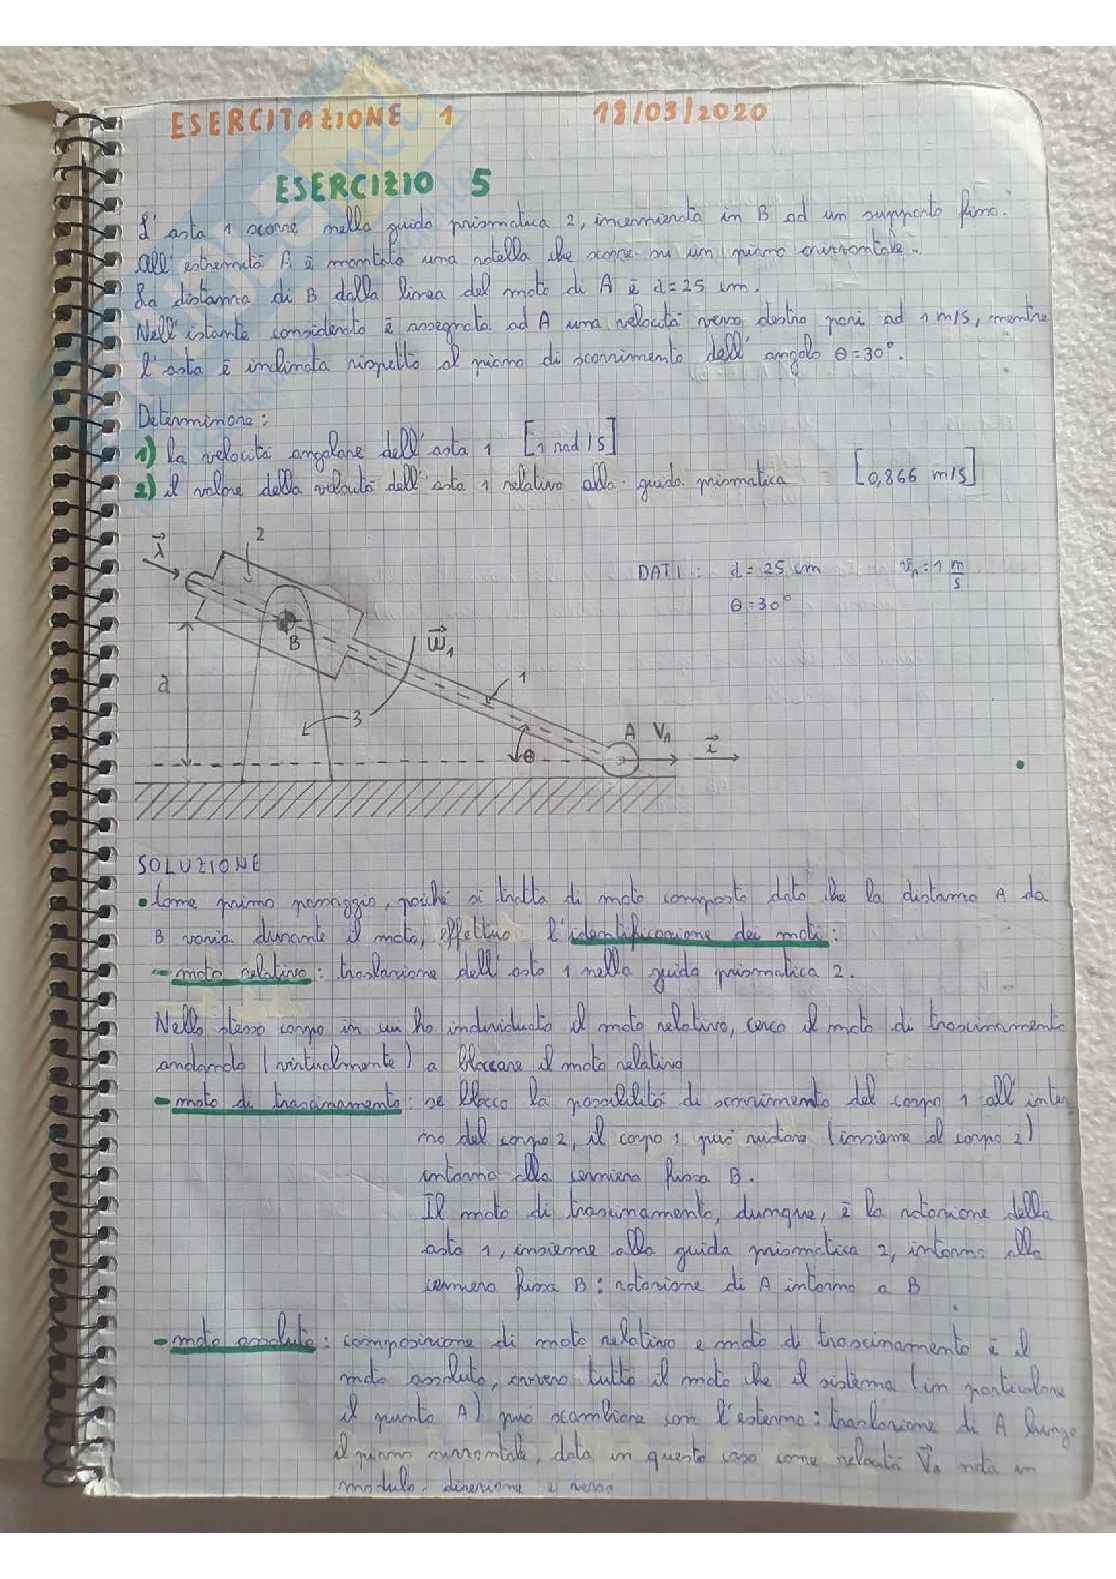 ESERCITAZIONE 1 18/03/2020
ESERCIZIO 5
L'asta 1 scorre nella guida prismatica 2, incernierata in B ad un supporto fisso.
All'estremità A è montata una rotella che scorre su un piano orizzontale.
La distanza di B dalla linea del moto di A è d=25 cm.
Nell'istante considerato è assegnata ad A una velocità verso destra pari ad 1 m/s, mentre
l'asta è inclinata rispetto al piano di scorrimento dell'angolo θ=30°.
Determinare:
1) la velocità angolare dell'asta 1 [1 rad/s]
2) il valore della velocità dell'asta 1 relativa alla guida prismatica [0,866 m/s]
λ⃗
2
B
d
ω⃗₁
1
3
θ
A
V_A
i⃗
DATI: d=25 cm v_A=1 m/s
θ=30°
SOLUZIONE
• Come primo passaggio, poiché si tratta di moto composto dato che la distanza A da
B varia durante il moto, effettuo l'identificazione dei moti:
- moto relativo: traslazione dell'asta 1 nella guida prismatica 2.
Nello stesso corpo in cui ho individuato il moto relativo, cerco il moto di trascinamento
andando (virtualmente) a bloccare il moto relativo
- moto di trascinamento: se blocco la possibilità di scorrimento del corpo 1 all'inter
no del corpo 2, il corpo 1 può ruotare (insieme al corpo 2)
intorno alla cerniera fissa B.
Il moto di trascinamento, dunque, è la rotazione della
asta 1, insieme alla guida prismatica 2, intorno alla
cerniera fissa B: rotazione di A intorno a B
- moto assoluto: composizione di moto relativo e moto di trascinamento è il
moto assoluto, ovvero tutto il moto che il sistema (in particolare
il punto A) può scambiare con l'esterno: traslazione di A lungo
il piano orizzontale, data in questo caso come velocità V⃗_A nota in
modulo, direzione e verso